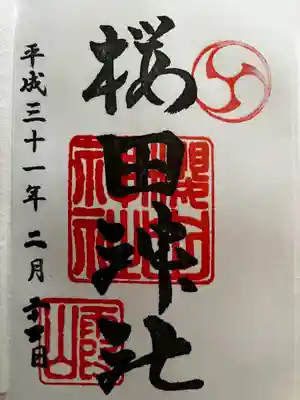 桜田神社
平成三十一年二月
霞山